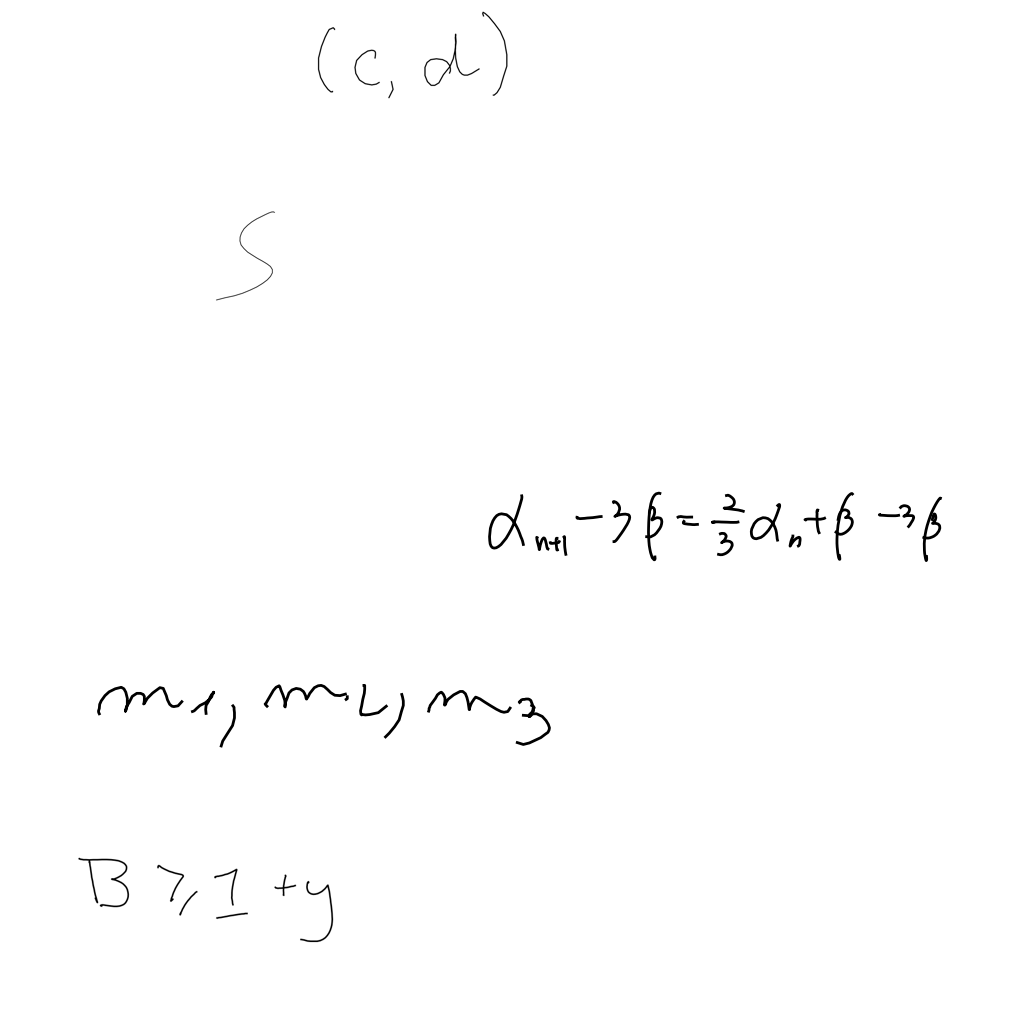 (c, d)
S
α_{n+1} - 3β = \frac{2}{3} α_n + β - 3β
m_1, m_2, m_3
B ≥ 1 + y